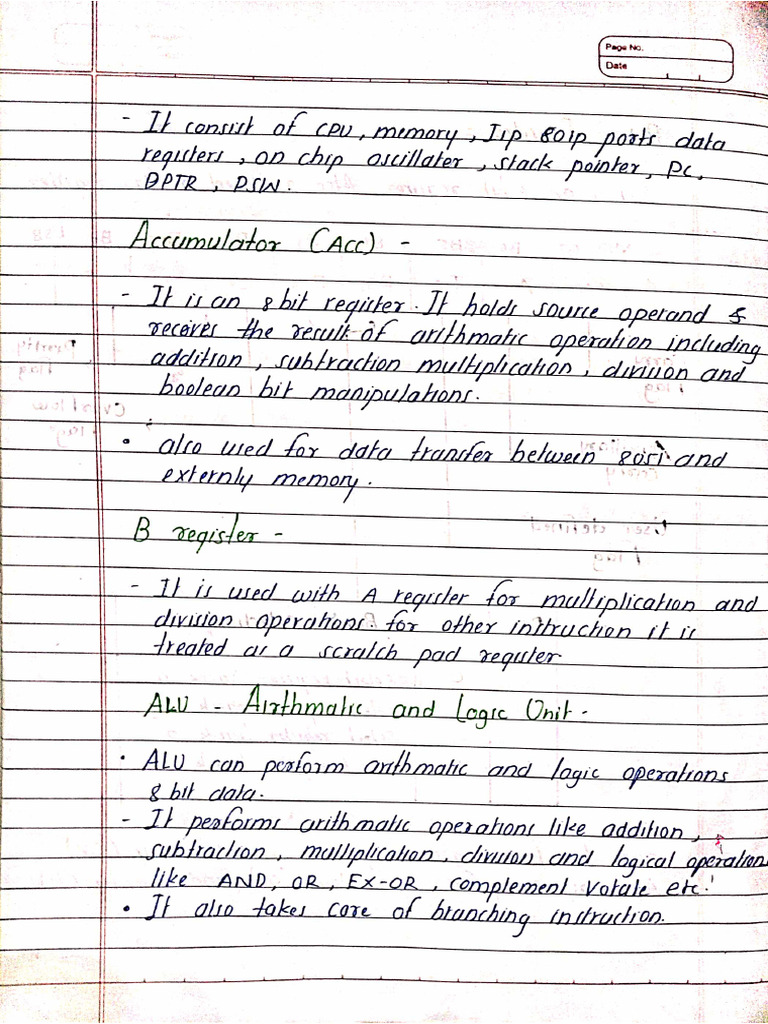 Page No.
Date
- It consist of CPU, memory, I1p 801p ports data
registers, on chip oscillater, stack pointer, PC,
DPTR, PSW.
Accumulator (Acc) -
- It is an 8 bit register. It holds source operand &
receives the result of arithmatic operation including
addition, subtraction multiplication, division and
boolean bit manipulations.
• also used for data transfer between 8051 and
externly memory.
B register -
- It is used with A register for multiplication and
division operations. for other instruction it is
treated as a scratch pad register
ALU - Airthmatic and Logic Unit -
• ALU can perform arithmatic and logic operations
8 bit data.
- It performs arithmatic operations like addition,
subtraction, multiplication, division and logical operation
like AND, OR, EX-OR, complement rotate etc.
• It also takes care of branching instruction.